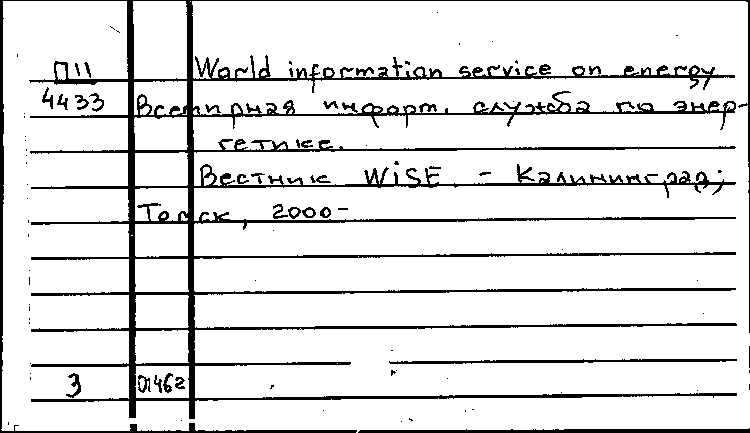 П11 World information service on energy
4433 Всемирная информ. служба по энер-
гетике.
Вестник WiSE. - Калининград;
Томск, 2000-
3 01462